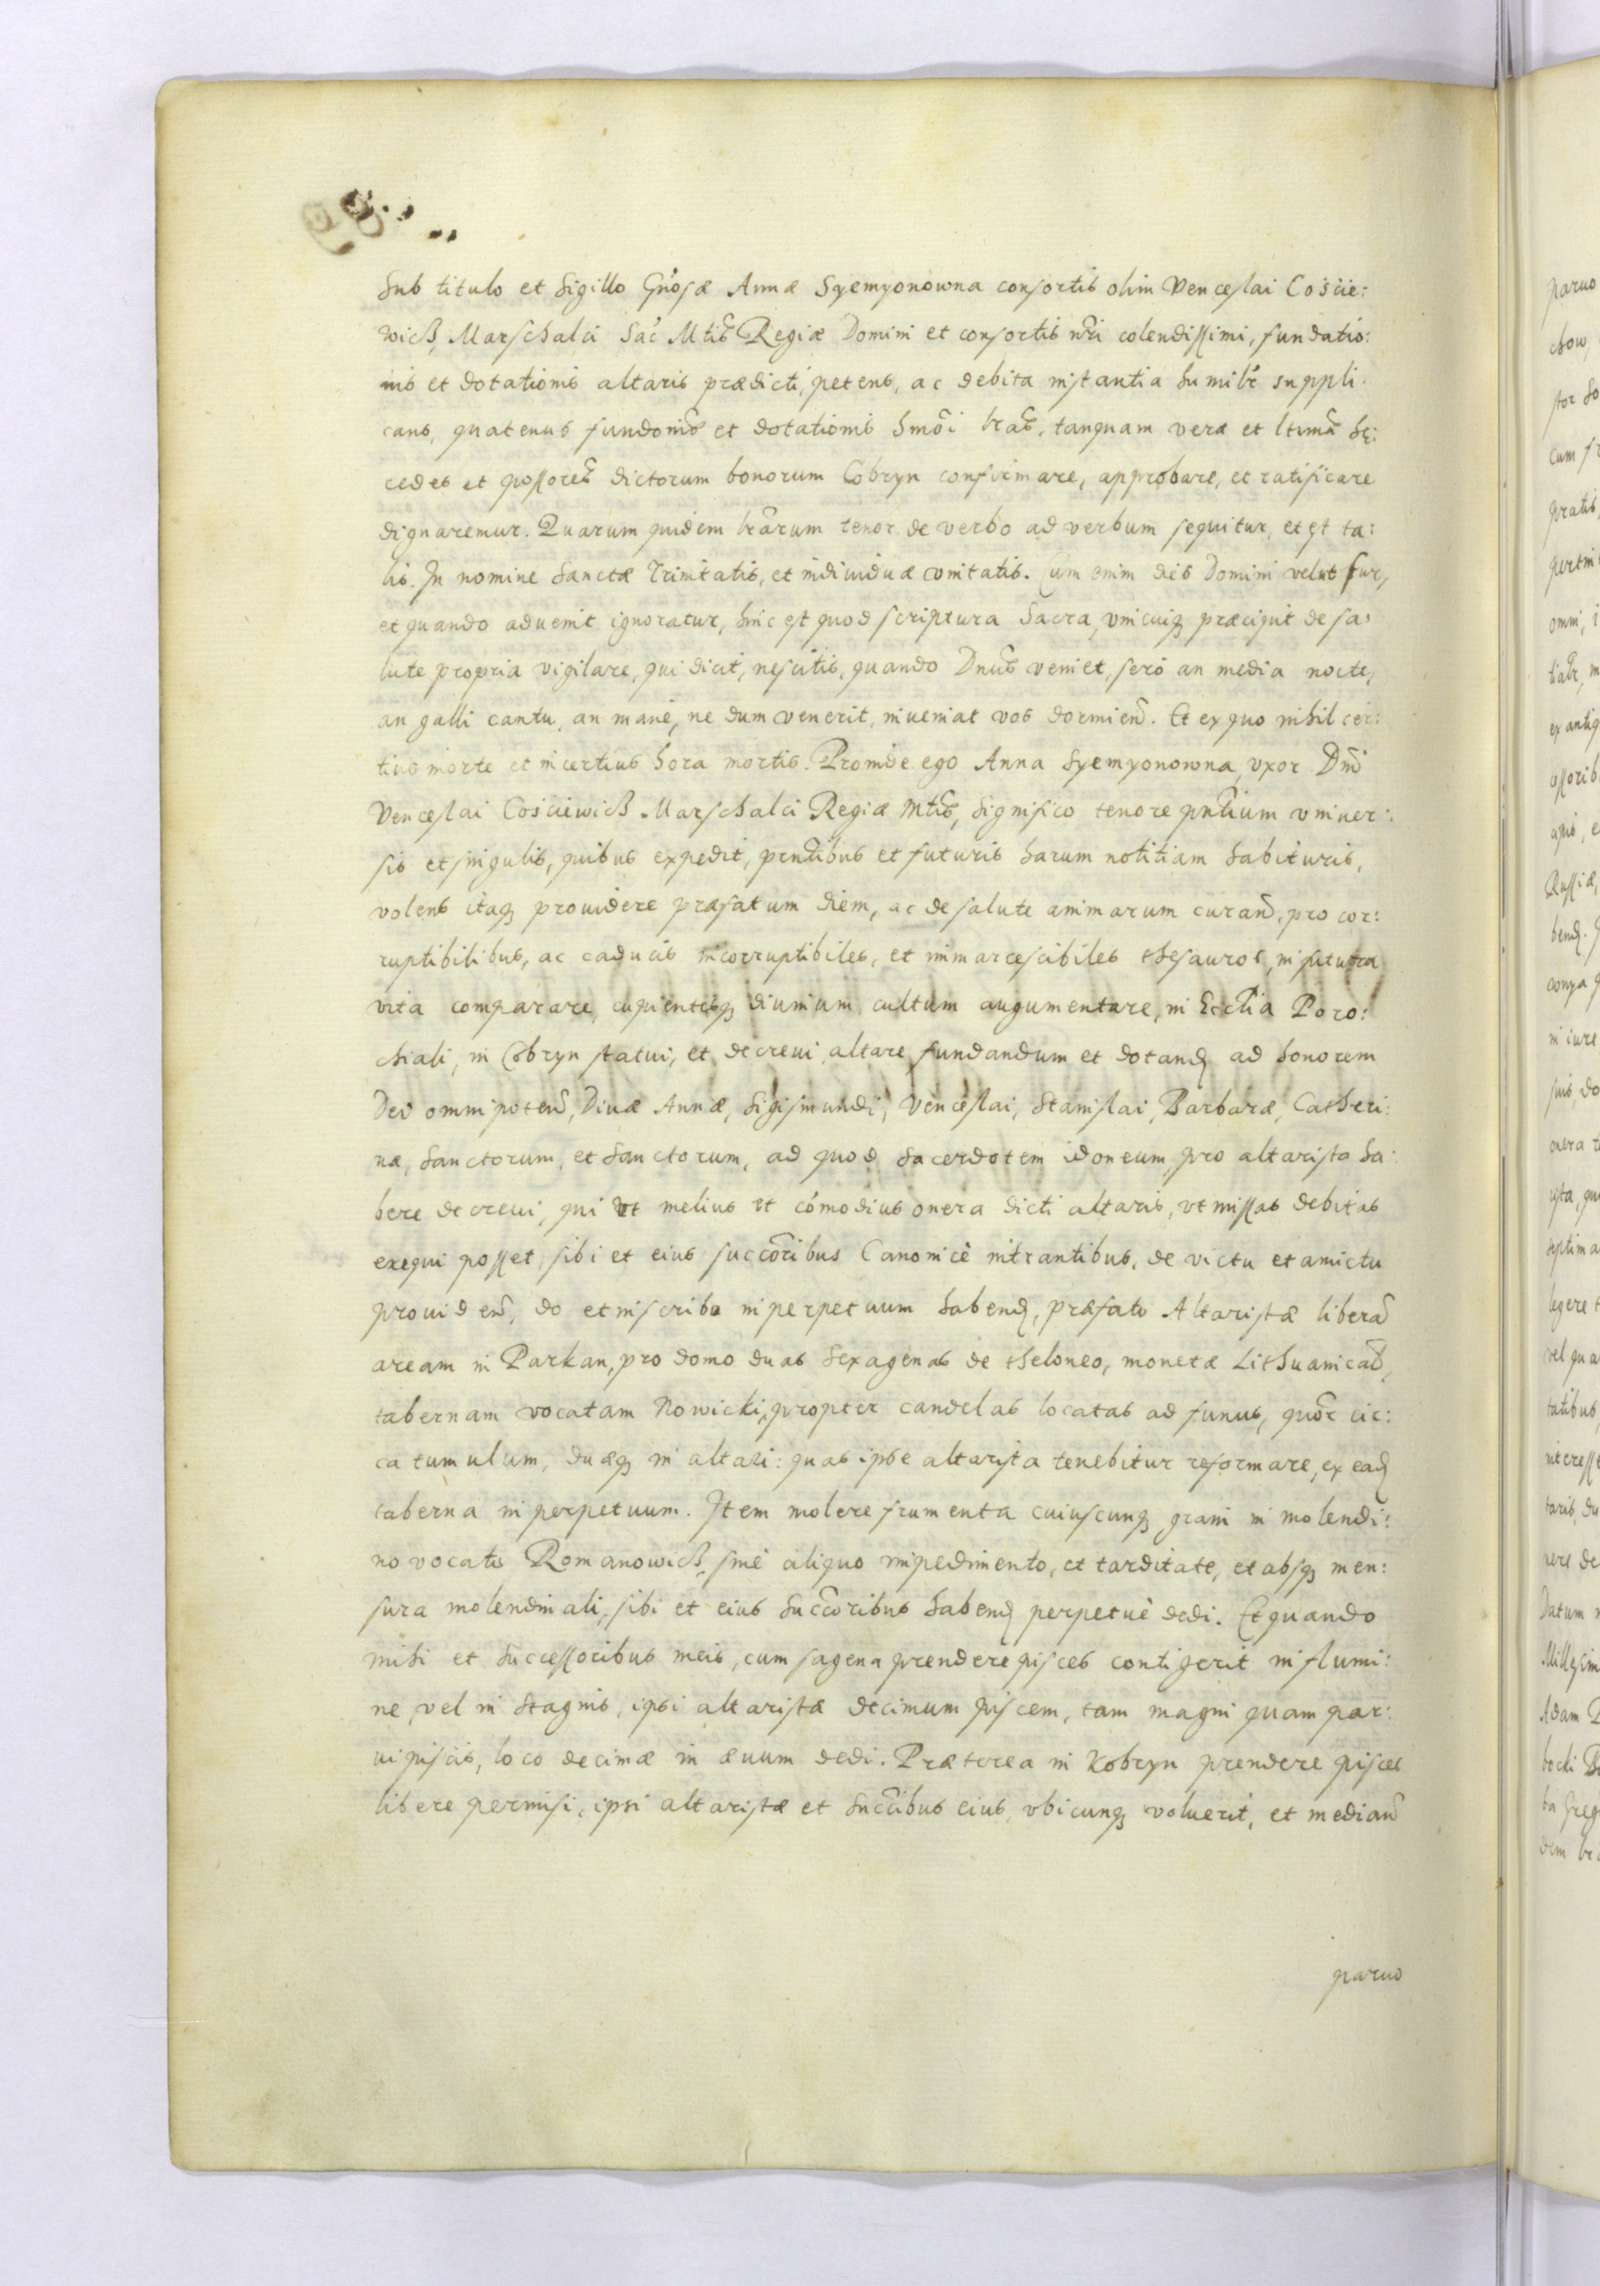 Sub titulo et Sigillo Gnosæ Annæ Syemyonowna consortis olim Venceslai Coscie:
wicß, Marschalci Sac Mtis Regiæ Domini et consortis nri colendissimi, fundatio:
nis et dotationis altaris prædicti, petens, ac debita instantia humilr suppli:
cans, quatenus fundonis et dotationis hmoi lras, tanquam veræ et ltimæ hę:
redes et possores dictorum bonorum Cobryn confirmare, approbare, et ratificare
dignaremur. Quarum quidem lrarum tenor de verbo ad verbum sequitur, et est ta:
lis. In nomine Sanctæ Trinitatis, et individuæ vnitatis. Cum enim dies Domini velut fur,
et quando aduenit ignoratur, hinc est quod scriptura Sacra, vnicuiq præcipit de sa:
lute propria vigilare, qui dicit, nescitis, quando Dnus veniet, sero an media nocte,
an galli cantu, an mane, ne dum venerit, inueniat vos dormien. Et ex quo nihil cer:
tius morte et incertius hora mortis. Proinde ego Anna Syemyonowna, vxor Dni
Venceslai Cosciewicß Marschalci Regiæ Mtis, significo tenore pntium vniuer:
sis et singulis, quibus expedit, prntibus et futuris harum notitiam habituris,
volens itaq prouidere præfatum diem, ac de salute animarum curand, pro cor:
ruptibilibus, ac caducis incorruptibiles, et immarcescibiles thesauros, in futura
vita comparare, cupientesq diuinum cultum augumentare, in Ecclia Poro:
chiali, in Cobryn statui, et decreui altare fundandum et dotand ad honorem
Dei omnipoten, Diuæ Annæ, Sigismundi, Venceslai, Stanislai, Barbaræ, Catheri:
næ, Sanctorum, et Sanctorum, ad quod Sacerdotem idoneum pro altarista ha:
bere decreui, qui vt melius et comodius onera dicti altaris, vt missas debitas
exequi posset, sibi et eius succoribus Canonice intrantibus, de victu et amictu
prouiden, do et inscribo in perpetuum habend, præfato Altaristæ liberam
aream in Parkan, pro domo duas sexagenas de theloneo, monetæ Lithuanical,
tabernam vocatam Nowicki, propter candelas locatas ad funus, quor cir:
ca tumulum, duæq in altari: quas ipse altarista tenebitur reformare, ex ead
taberna in perpetuum. Item molere frumenta cuiuscunq grani in molendi:
no vocato Romanowicß, sine aliquo impedimento, et tarditate, et absq men:
sura molendinali, sibi et eius Succoribus habend perpetue dedi. Et quando
mihi et Successoribus meis, cum sagena prendere pisces contigerit in flumi:
ne, vel in stagnis, ipsi altaristæ decimum piscem, tam magni quam par:
ui piscis, loco decimæ in æuum dedi. Præterea in Kobryn prendere pisces
libere permisi, ipsi altaristæ et Succibus eius, vbicunq voluerit, et median
paruo